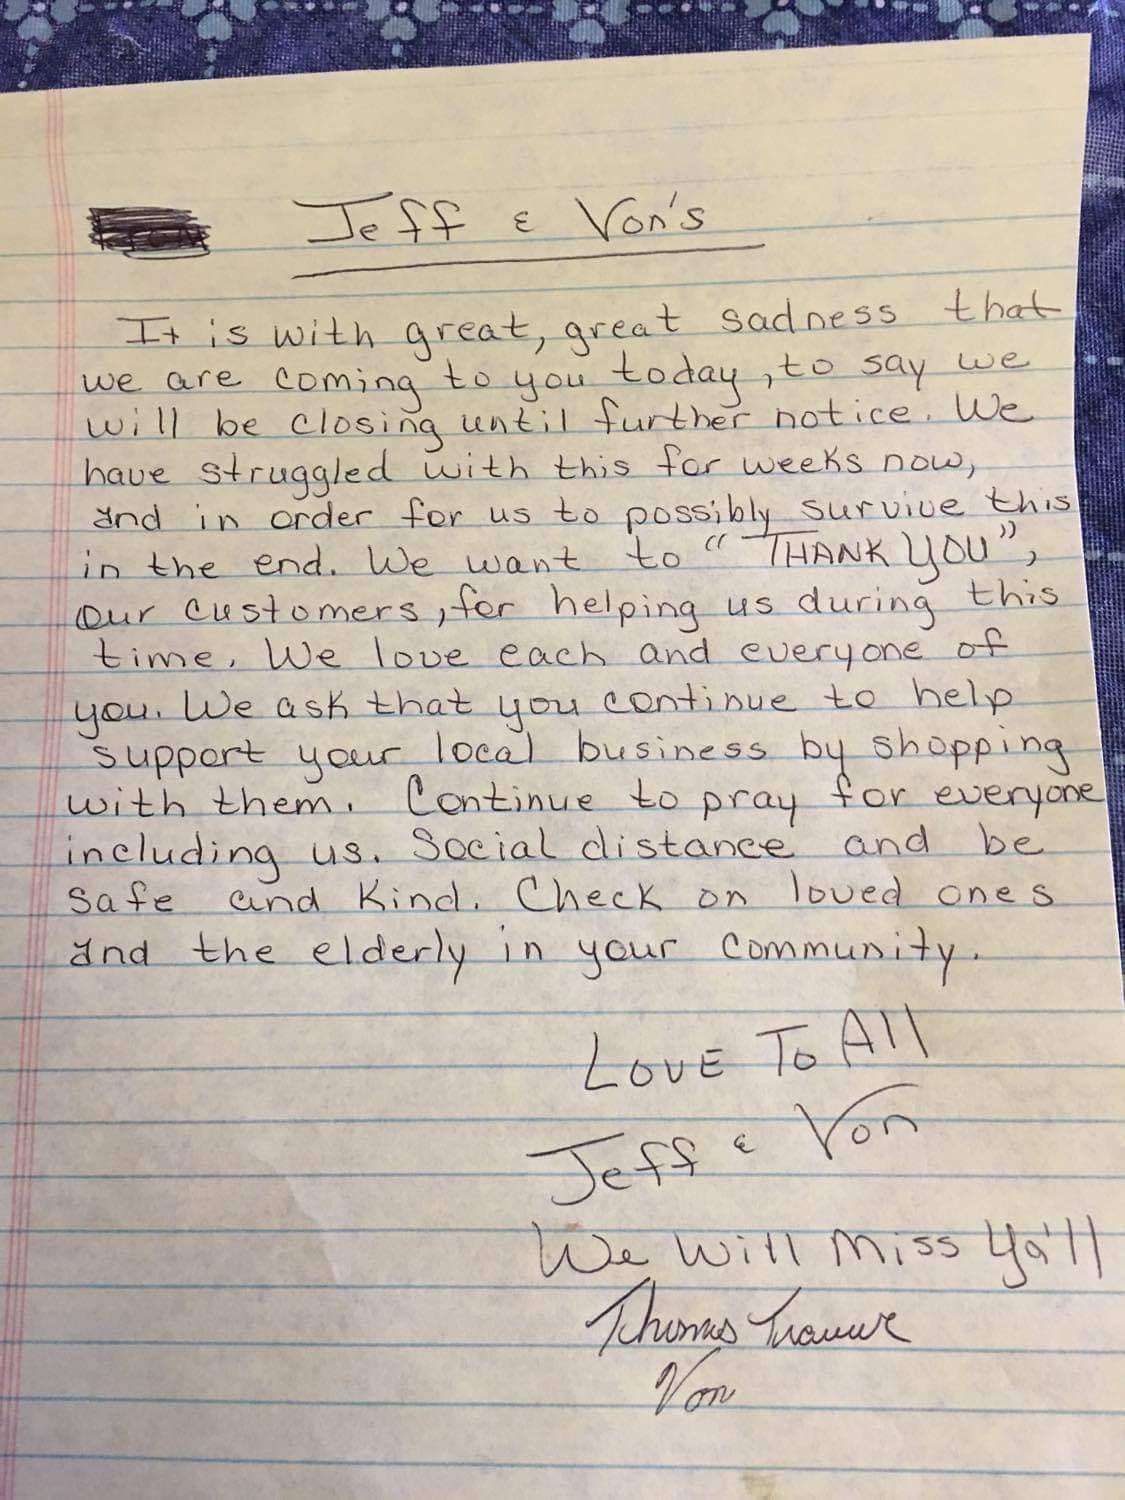 Jeff & Von's
It is with great, great sadness that
we are coming to you today, to say we
will be closing until further notice. We
have struggled with this for weeks now,
and in order for us to possibly survive this
in the end. We want to "THANK YOU",
our customers, for helping us during this
time. We love each and everyone of
you. We ask that you continue to help
support your local business by shopping
with them. Continue to pray for everyone
including us. Social distance and be
safe and kind. Check on loved ones
and the elderly in your community.
LOVE To All
Jeff & Von
We Will Miss Ya'll
Thomas
Von